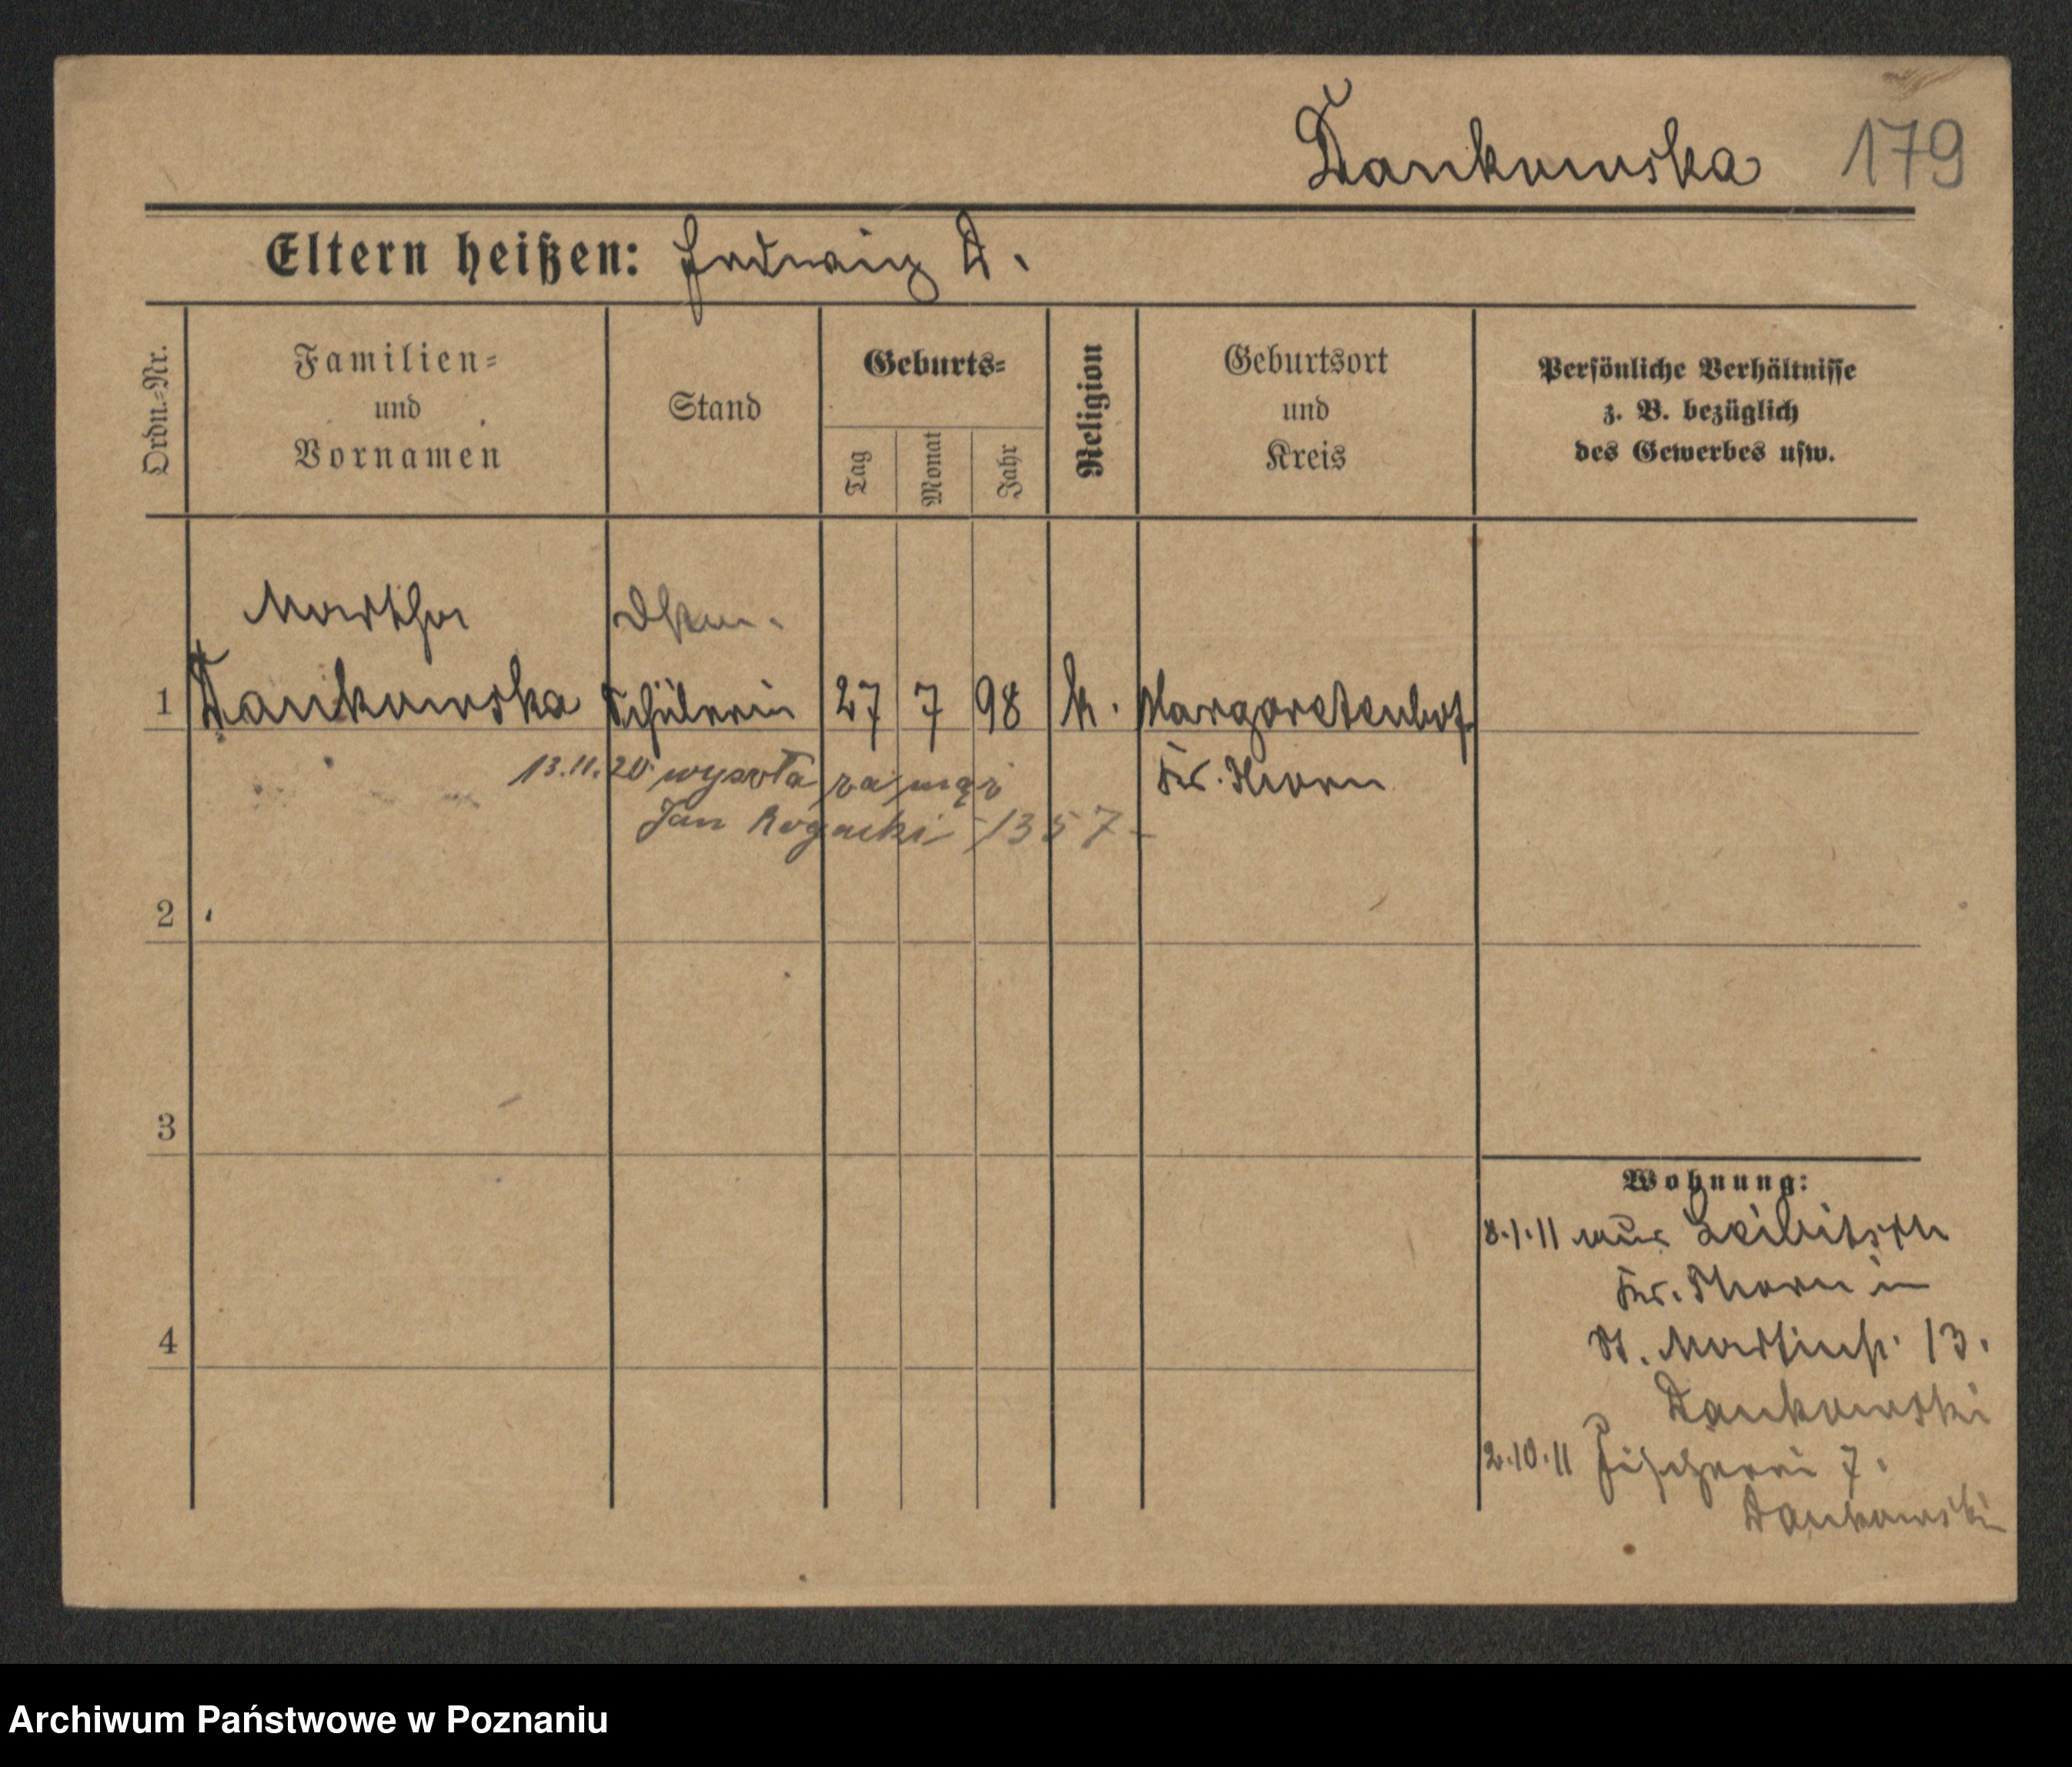 Dankowska 179
Eltern heißen: Hedwig D.
Ordn.-Nr.
Familien-
und
Vornamen
Stand
Geburts-
Tag
Monat
Jahr
Religion
Geburtsort
und
Kreis
Persönliche Verhältnisse
z. B. bezüglich
des Gewerbes usw.
Martha
1 Dankowska Schülerin 27 7 98 k. Margaretenhof
Kr. Thorn
13.11.20 wyszła za mąż
Jan Rogacki -1357-
2
3
4
Wohnung:
8.1.11 aus Leibitsch
Kr. Thorn in
St. Martinstr. 13.
Dankowski
2.10.11 Fischerei 7.
Dankowski
Archiwum Państwowe w Poznaniu